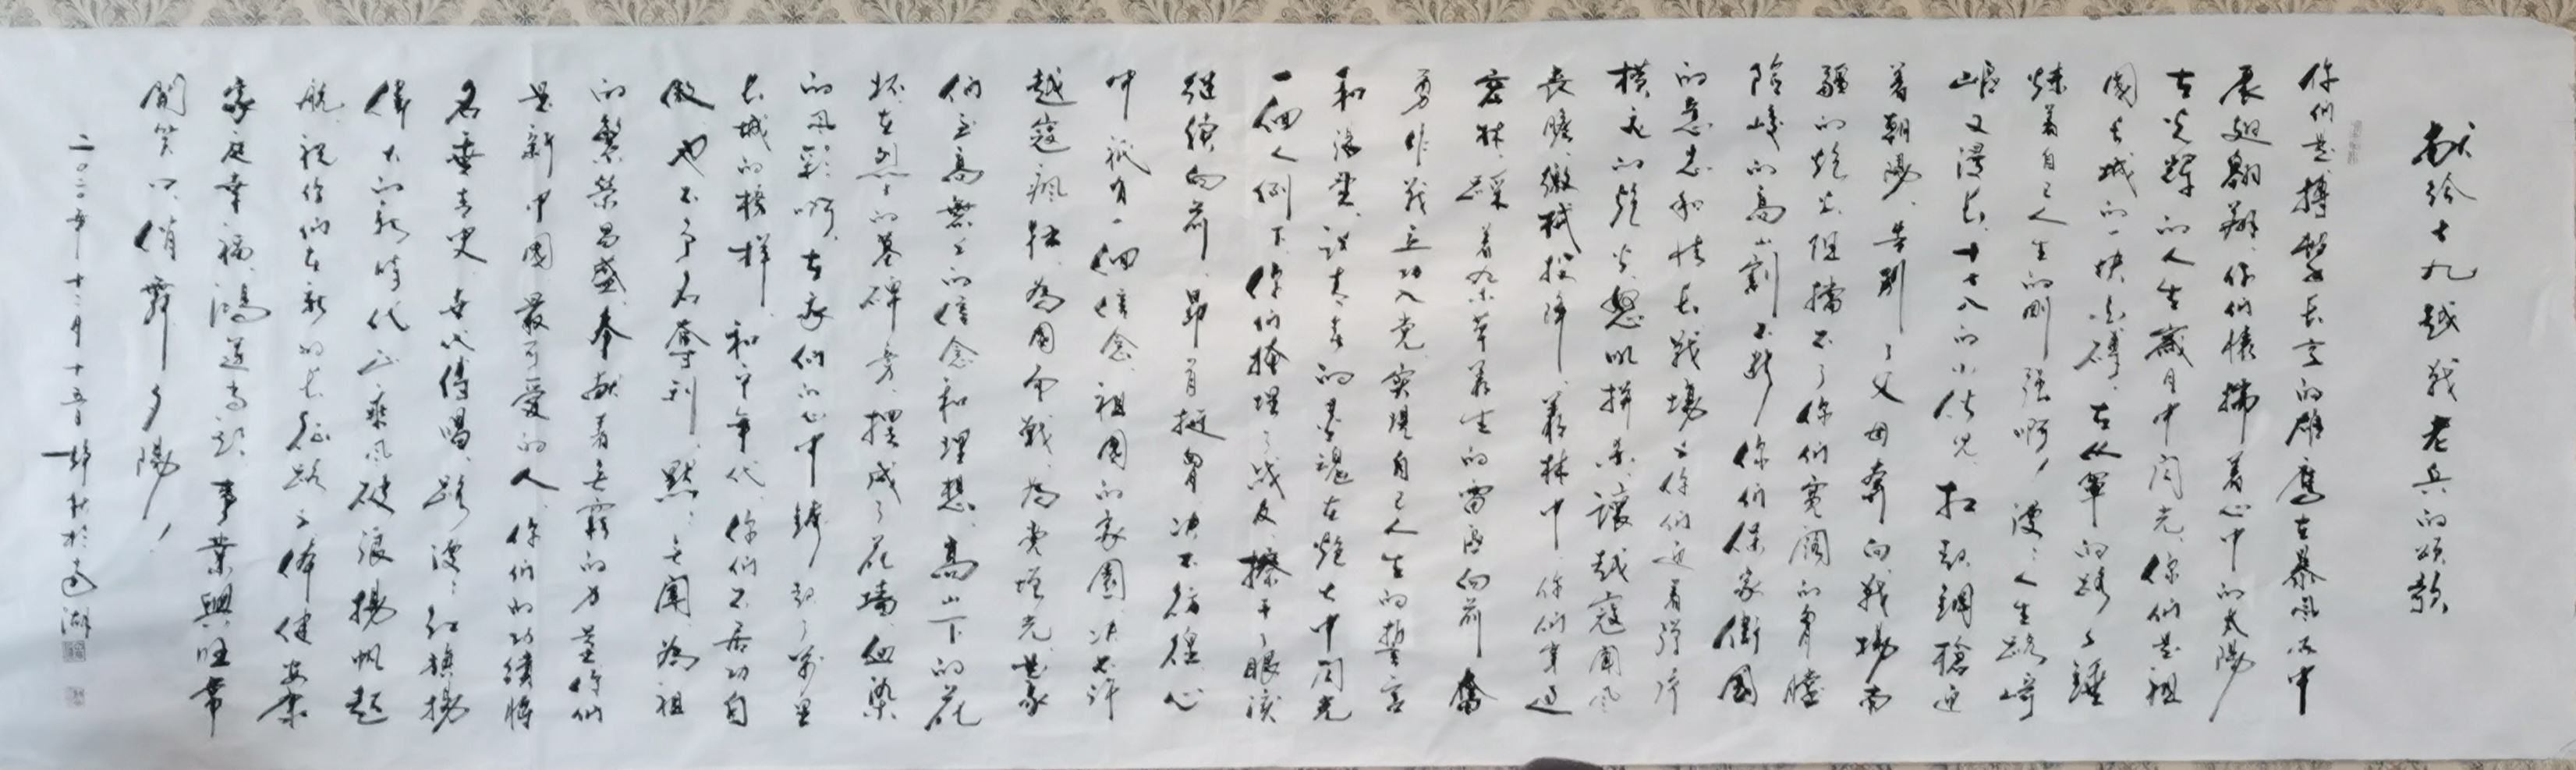 献给七九越战老兵的颂歌
你们是搏击长空的雄鹰在暴风雨中
展翅翱翔、你们怀揣着心中的太阳
在光辉的人生岁月中闪光、你们是祖
国长城的一块金砖、在从军的路上锤
炼着自己人生的刚强啊！漫：人生路崎
岖又漫长、十七八的小伙儿、扛起钢枪迎
着朝阳、告别了父母奔向战场、南
疆的炮火、阻挡不了你们宽阔的胸膛
险峻的高山割不断你们保家卫國
的意志和情长、战场上你们迎着弹片
横飞的炮火、怒吼拼杀、让越寇闻风
丧胆、缴械投降、丛林中、你们穿过
密林、踩着杂草丛生的雷区向前奋
勇作战立功入党、实现自己人生的誓言
和渴望、让青春的灵魂在炮火中闪光
一個人倒下、你们掩埋了战友、擦干了眼泪
继续向前、昂首挺胸、决不彷徨、心
中衹有一個信念、祖国的家园、决不许
越寇疯狂、為国而战、為党增光、是
你们至高無上的信念和理想、高山下的花
环在烈士的墓碑旁、摆成了花墙、血染
的风彩啊、在家们的心中铸起了万里
长城的榜样、和平年代、你们不居功自
傲、也不争名夺利、默：无闻、為祖
的繁荣昌盛、奉献着无穷的力量你们
是新中国最可爱的人、你们的功绩将
名垂青史、世代传唱、路漫：红旗扬
伟大的新时代正乘风破浪扬帆起
航、祝你们在新的长征路上体健安康
家庭幸福、鸿运当头、事业興旺常
開笑口、俏舞夕陽！
二〇二〇年十二月十五日